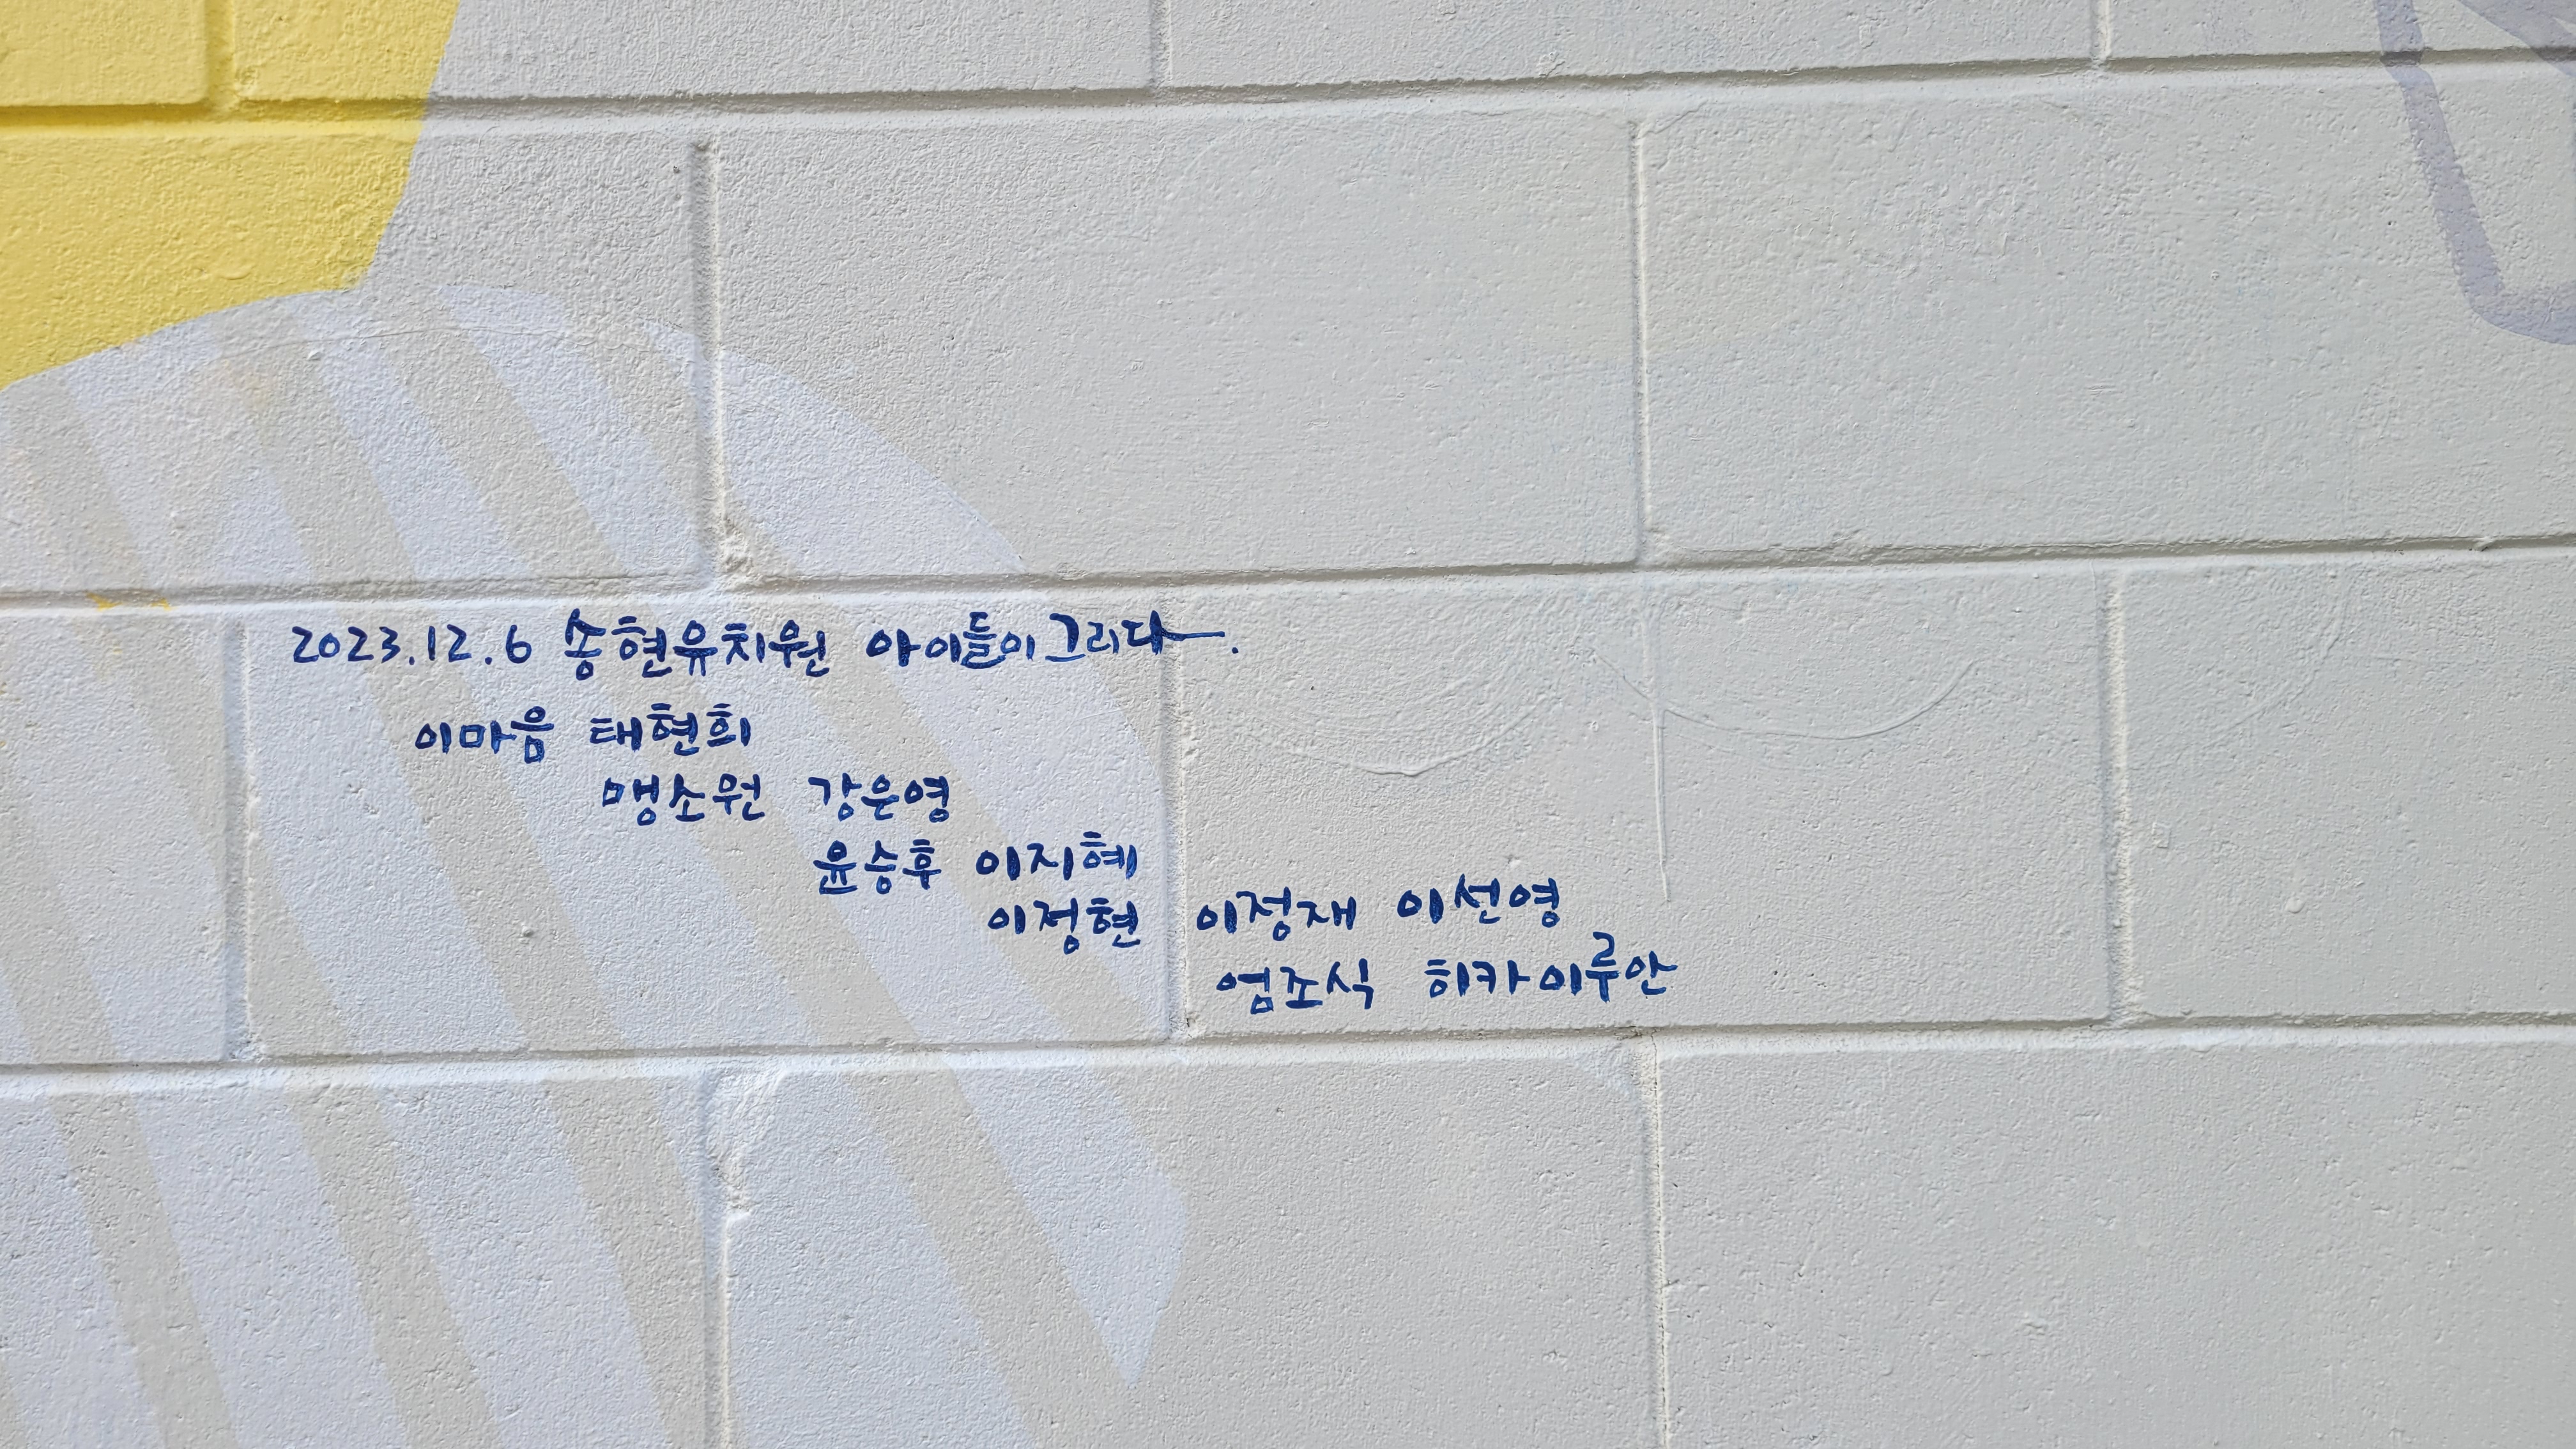 2023.12.6 송현유치원 아이들이 그리다.
이마음 태현희
맹소원 강은영
윤승후 이지혜
이정현 이정재 이선영
엄조식 히카이루안